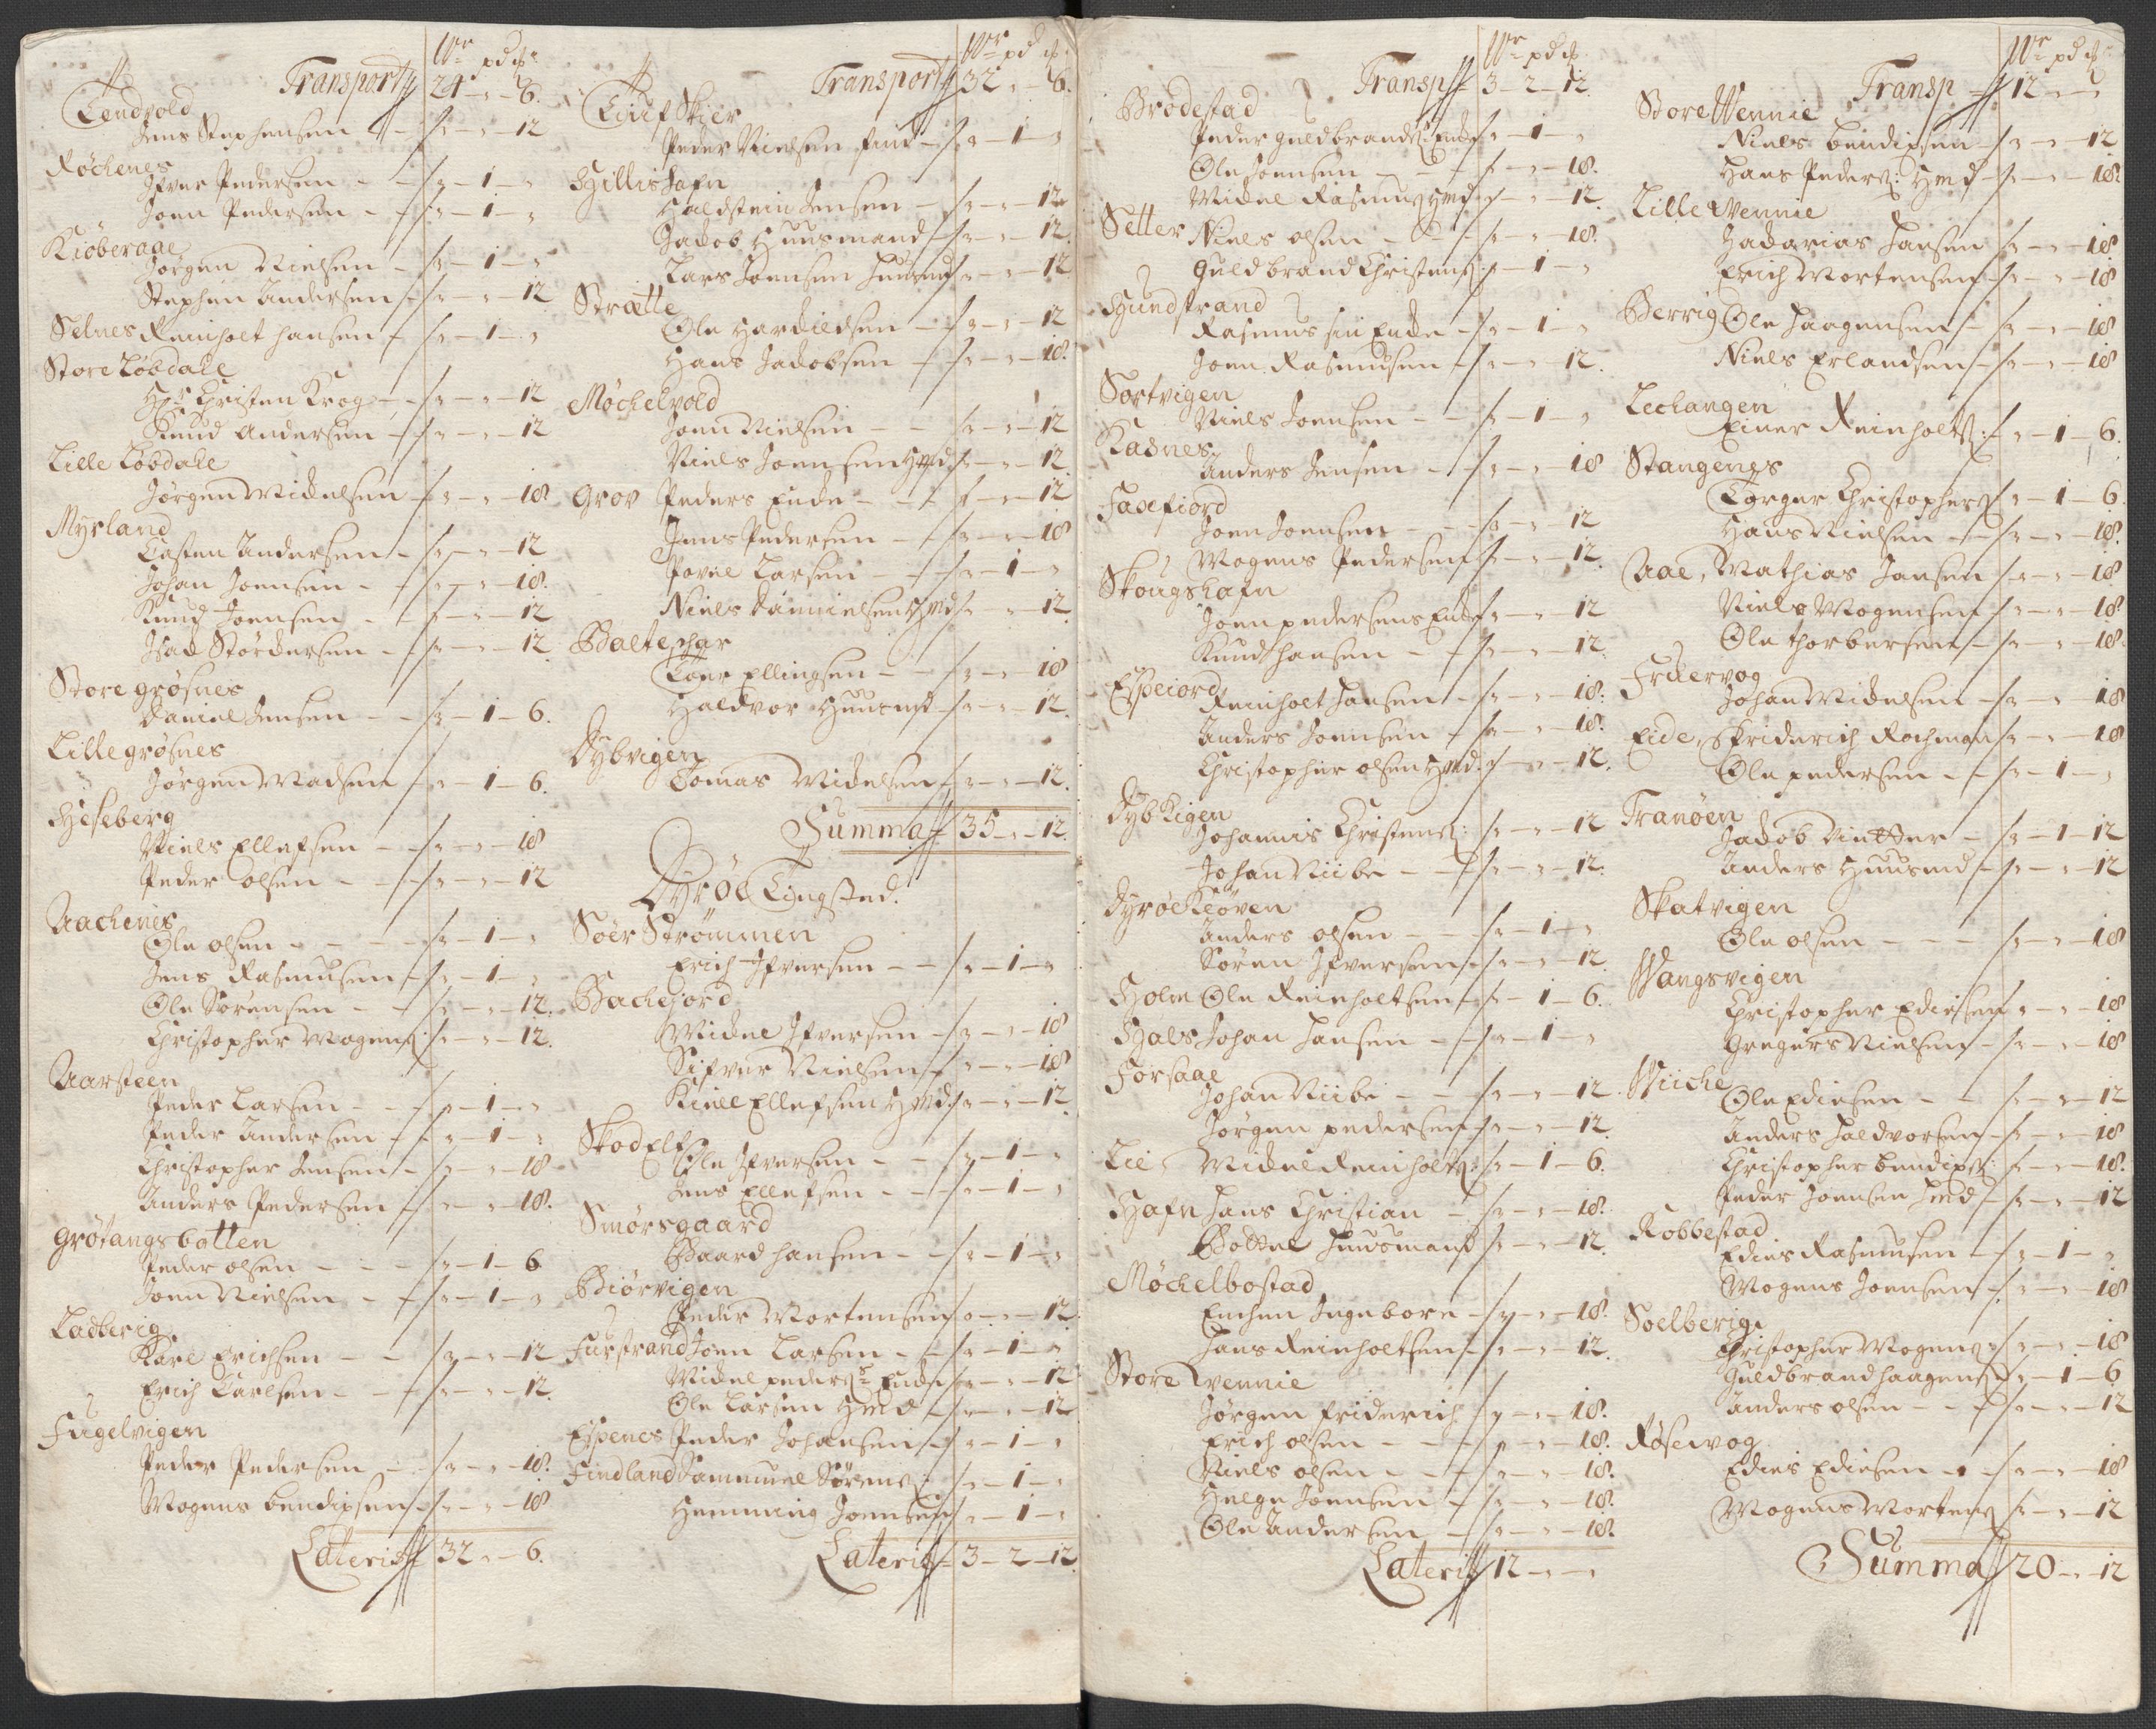 Wr pd ȹ:
Transport 24 - " - 6.
Tendvold
Jens Stephensen - " - " - 12
Røchenes
Ifver Pedersen - - " - 1 - "
Joen Pedersen - - " - 1 - "
Kiøberaae
Jørgen Nielsen - " - 1 - "
Stephen Andersen - " - " - 12
Selnes Reinholt Hansen - " - 1 - "
Store Løbdale
Hr Christen Krog - " - " - 12
Knud Andersen - " - " - 12
Lille Løbdale
Jørgen Michelsen - " - " - 18
Myrland
Casten Andersen - " - " - 12
Johan Joensen - " - " - 18.
Knud Joensen - " - " - 12
Isach Størchersen - " - " - 12
Store grøsnes
Daniel Jensen - - " - 1 - 6.
Lille grøsnes
Jørgen Madsen - " - 1 - 6.
Hiseberg
Niels Ellefsen - - " - " - 18
Peder olsen - - " - " - 12
Aachenes
Ole olsen - - - " - 1 - "
Jens Rasmusen - " - 1 - "
Ole Sørensen - - " - " - 12.
Christopher Mogens: " - " - 12.
Aarsteen
Peder Larsen - - " - 1 - "
Peder Andersen - " - 1 - "
Christopher Jensen - " - " - 18
Anders Pedersen - " - " - 18.
Grøtangsbotten
Peder olsen - - - " - 1 - 6
Joen Nielsen - - " - 1 - "
Ladberig
Karl Erichsen - - " - " - 12
Erich Carlsen - - " - " - 12.
Fugelvigen
Peder Pedersen - " - " - 18.
Mogens bendixsen - " - " - 18
Lateris 32 - " - 6.
Wr pd ȹ:
Transport 32 " - 6.
Peder Nielsen find - " - 1 - "
Hillishafn
Haldstein Jensen - " - " - 12
Jacob Huusmand - " - " - 12.
Lars Joensen huusmd " - " - 12
Strætte
Ole Hardichsen - " - " - 12
Hans Jacobsen - " - " - 18.
Møchelvold
Joen Nielsen - - " - " - 12
Niels Joensen Hmd " - " - 12.
Grov Peders Encke - - " - " - 12
Jens Pedersen - " - " - 18
Povel Larsen - - " - 1 - "
Niels Danielsen Hmd " - " - 12
Balteschar
Toer Ellingsen - - " - " - 18
Haldvor Huusmd - " - " - 12.
Dybvigen
Tomas Michelsen " - " - 12.
Summa 35 - " - 12.
Dyrøe Tingsted.
Søer Strømmen
Erich Ifversen - - " - 1 - "
Bachejord
Michel Ifversen - " - " - 18
Sifver Nielsen - " - " - 18
Kield Ellefsen Hmd: " - " - 12
Skodelf
Ole Ifversen - - " - 1 - "
Jens Ellefsen - - " - 1 - "
Smørsgaard
Baard Hansen - - " - 1 - "
Biørvigen
Peder Mortensen " - " - 12.
Furstrand Joen Larsen - - " - 1 - "
Michel peders: Encke " - " - 12
Ole Larsen Hmd - " - " - 12
Espenes Peder Johansen - " - 1 - "
Findland Sammuel Sørens: - " - 1 - "
Hemming Joensen " - 1 - "
Lateris 3 - 2 - 12.
Wr pd ȹ:
Transp 3 - 2 - 12.
Brødestad
Peder guldbrands: Encke " - 1 - "
Ole Joensen - - - " - " - 18.
Michel Rasmus: Hmd: " - " - 12.
Setter Niels olsen - - " - " - 18.
Guldbrand Christens: " - 1 - "
Hundstrand
Rasmus sin Encke - " - 1 - "
Joen Rasmusen - " - " - 12.
Sørtvigen
Niels Joensen - - " - 1 - "
Kasnes
Anders Jensen - " - " - 18
Faxefiord
Joen Joensen - - " - " - 12
Mogens Pedersen " - " - 12.
Skougshafn
Joen pedersens Encke " - " - 12
Knud Hansen - - " - " - 12.
Espeiord
Reinholt Hansen - " - " - 18.
Anders Joensen - " - " - 18.
Christopher olsen Hmd: " - " - 12.
Dybkigen
Johannis Christens: " - " - 12
Johan Niibe - - " - " - 12.
Anders olsen - - " - 1 - "
Søren Ifversen " - " - 12.
Holm Ole Reinholtsen " - 1 - 6.
Hals Johan Hansen - - " - 1 - "
Forsaae
Johan Niibe - - " - " - 12.
Jørgen pedersen " - " - 12.
Lie Michel Reinholts: " - 1 - 6.
Hafn Hans Christian - " - " - 18.
Bottel Huusmand " - " - 12.
Møchelbostad
Enchen Ingebore - " - " - 18.
Hans Reinholtsen " - " - 12.
Store Wennie
Jørgen friderich " - " - 18.
Erich olsen - - " - " - 18.
Niels olsen - - " - " - 18.
Helge Joensen - " - " - 18.
Ole Andersen - " - " - 18.
Lateris 12 - " - "
Wr pd ȹ:
Transp 12 - " - "
Store Wennie
Niels bendixsen - " - " - 12
Hans Peders: Hmd - " - " - 18.
Lille Wennie
Zacharias Hansen " - " - 18
Erich Mortensen " - " - 18
Berrig Ole Haagensen " - " - 18
Niels Erlandsen " - " - 18
Leckangen
Einer Reinholts: " - 1 - 6.
Stangenes
Torger Christophers: " - 1 - 6.
Hans Nielsen - - " - " - 18.
Aae, Mathias Hansen " - " - 18
Niels Mogensen " - " - 18.
Ole Thorbersen " - " - 18.
Fruervog
Johan Michelsen " - " - 18
Eide, Friderich Rochman " - " - 18
Ole pedersen - - " - 1 - "
Tranøen
Jacob Nutter - " - 1 - 12
Anders Huusmd - " - " - 12
Skatvigen
Ole olsen - - - " - " - 18
Wangsvigen
Christopher Edisen " - " - 18
Gregers Nielsen " - " - 18
Wiiche
Ole Edisen - - " - " - 12
Anders Haldvorsen " - " - 18
Christopher bendixs: " - " - 18.
Peder Joensen Hmd " - " - 12
Robbestad
Edies Rasmusen " - 1 - "
Mogens Joensen " - " - 18
Soelberig
Christopher Mogens: " - " - 18
Guldbrand Haagens: " - 1 - 6
Anders olsen - - " - " - 12
Røsevog
Edies Ediesen - " - " - 18
Mogens Mortens: " - " - 12
Summa 20 - " - 12